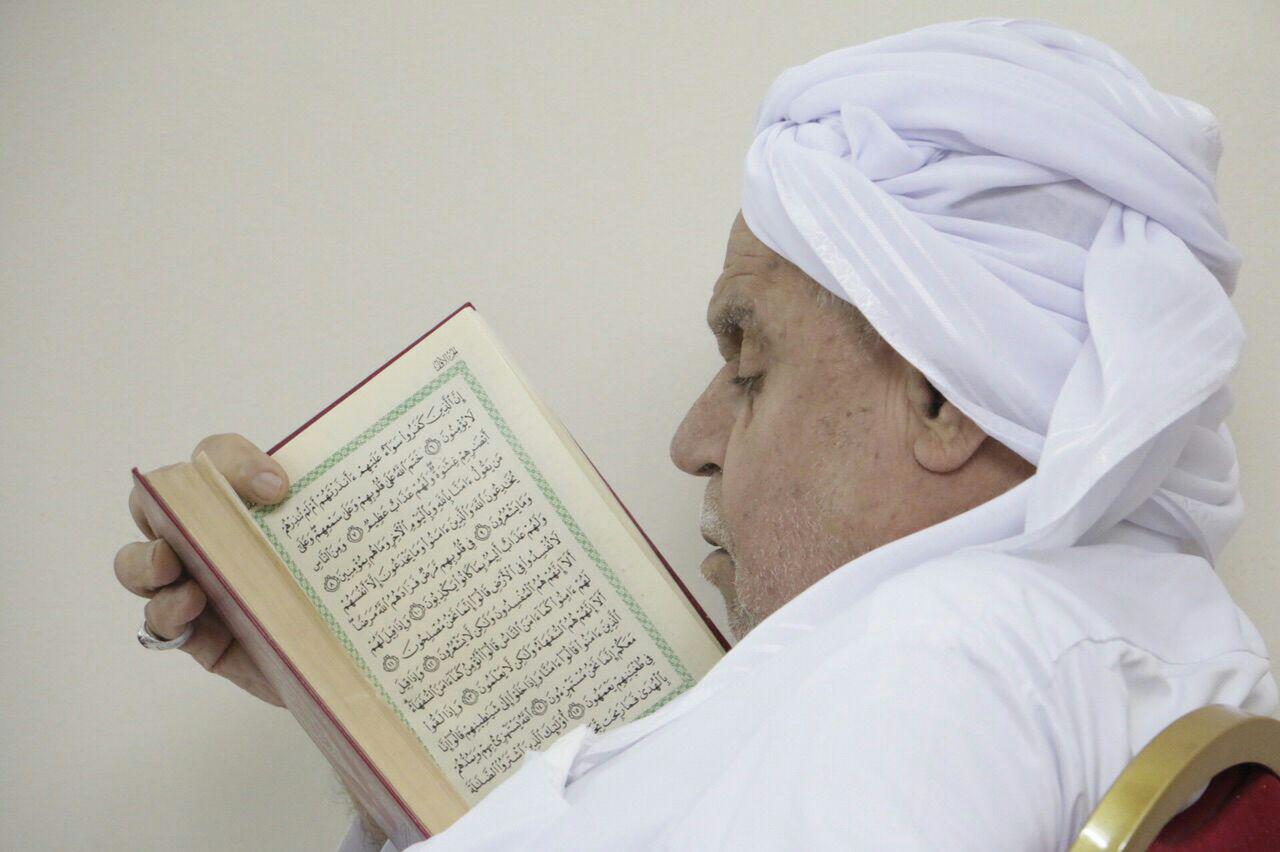 الجزء الأول
إِنَّ ٱلَّذِينَ كَفَرُوا۟ سَوَآءٌ عَلَيْهِمْ ءَأَنذَرْتَهُمْ أَمْ لَمْ تُنذِرْهُمْ
لَا يُؤْمِنُونَ ٦ خَتَمَ ٱللَّهُ عَلَىٰ قُلُوبِهِمْ وَعَلَىٰ سَمْعِهِمْ وَعَلَىٰٓ
أَبْصَٰرِهِمْ غِشَٰوَةٌ وَلَهُمْ عَذَابٌ عَظِيمٌ ٧ وَمِنَ ٱلنَّاسِ
مَن يَقُولُ ءَامَنَّا بِٱللَّهِ وَبِٱلْيَوْمِ ٱلْءَاخِرِ وَمَا هُم بِمُؤْمِنِينَ ٨
يُخَٰدِعُونَ ٱللَّهَ وَٱلَّذِينَ ءَامَنُوا۟ وَمَا يَخْدَعُونَ إِلَّآ أَنفُسَهُمْ
وَمَا يَشْعُرُونَ ٩ فِى قُلُوبِهِم مَّرَضٌ فَزَادَهُمُ ٱللَّهُ مَرَضًا
وَلَهُمْ عَذَابٌ أَلِيمٌۢ بِمَا كَانُوا۟ يَكْذِبُونَ ١٠ وَإِذَا قِيلَ لَهُمْ
لَا تُفْسِدُوا۟ فِى ٱلْأَرْضِ قَالُوٓا۟ إِنَّمَا نَحْنُ مُصْلِحُونَ ١١
أَلَآ إِنَّهُمْ هُمُ ٱلْمُفْسِدُونَ وَلَٰكِن لَّا يَشْعُرُونَ ١٢ وَإِذَا قِيلَ
لَهُمْ ءَامِنُوا۟ كَمَآ ءَامَنَ ٱلنَّاسُ قَالُوٓا۟ أَنُؤْمِنُ كَمَآ ءَامَنَ ٱلسُّفَهَآءُ
أَلَآ إِنَّهُمْ هُمُ ٱلسُّفَهَآءُ وَلَٰكِن لَّا يَعْلَمُونَ ١٣ وَإِذَا لَقُوا۟
ٱلَّذِينَ ءَامَنُوا۟ قَالُوٓا۟ ءَامَنَّا وَإِذَا خَلَوْا۟ إِلَىٰ شَيَٰطِينِهِمْ قَالُوٓا۟ إِنَّا
مَعَكُمْ إِنَّمَا نَحْنُ مُسْتَهْزِءُونَ ١٤ ٱللَّهُ يَسْتَهْزِئُ بِهِمْ وَيَمُدُّهُمْ
فِى طُغْيَٰنِهِمْ يَعْمَهُونَ ١٥ أُو۟لَٰٓئِكَ ٱلَّذِينَ ٱشْتَرَوُا۟ ٱلضَّلَٰلَةَ
بِٱلْهُدَىٰ فَمَا رَبِحَت